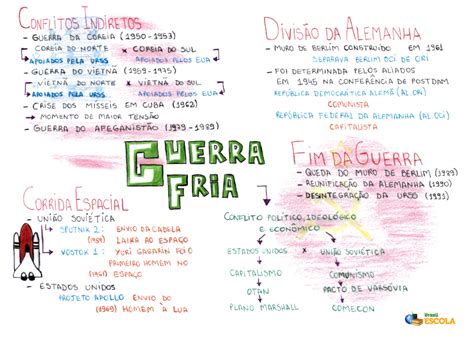 CONFLITOS INDIRETOS
- GUERRA DA COREIA (1950-1953)
COREIA DO NORTE x COREIA DO SUL
APOIADOS PELA URSS APOIADOS PELOS EUA
- GUERRA DO VIETNÃ (1959-1975)
VIETNÃ DO NORTE x VIETNÃ DO SUL
APOIADOS PELA URSS APOIADOS PELOS EUA
- CRISE DOS MÍSSEIS EM CUBA (1962)
→ MOMENTO DE MAIOR TENSÃO
- GUERRA DO AFEGANISTÃO (1979-1989)
DIVISÃO DA ALEMANHA
- MURO DE BERLIM CONSTRUÍDO EM 1961
SEPARAVA BERLIM OCI DE ORI
- FOI DETERMINADA PELOS ALIADOS
EM 1945 NA CONFERÊNCIA DE POSTDAM
REPÚBLICA DEMOCRÁTICA ALEMÃ (AL ORI)
COMUNISTA
REPÚBLICA FEDERAL DA ALEMANHA (AL OCI)
CAPITALISTA
GUERRA
FRIA
FIM DA GUERRA
- QUEDA DO MURO DE BERLIM (1989)
- REUNIFICAÇÃO DA ALEMANHA (1990)
- DESINTEGRAÇÃO DA URSS (1991)
CORRIDA ESPACIAL
- UNIÃO SOVIÉTICA
SPUTNIK 2: ENVIO DA CADELA
(1957) LAIKA AO ESPAÇO
VOSTOK 1: YURI GAGARIN FOI O
PRIMEIRO HOMEM NO
(1961) ESPAÇO
- ESTADOS UNIDOS
PROJETO APOLLO ENVIO DO
(1969) HOMEM À LUA
CONFLITO POLÍTICO, IDEOLÓGICO
E ECONÔMICO
ESTADOS UNIDOS x UNIÃO SOVIÉTICA
CAPITALISMO COMUNISMO
OTAN PACTO DE VARSÓVIA
PLANO MARSHALL COMECON
Brasil
ESCOLA